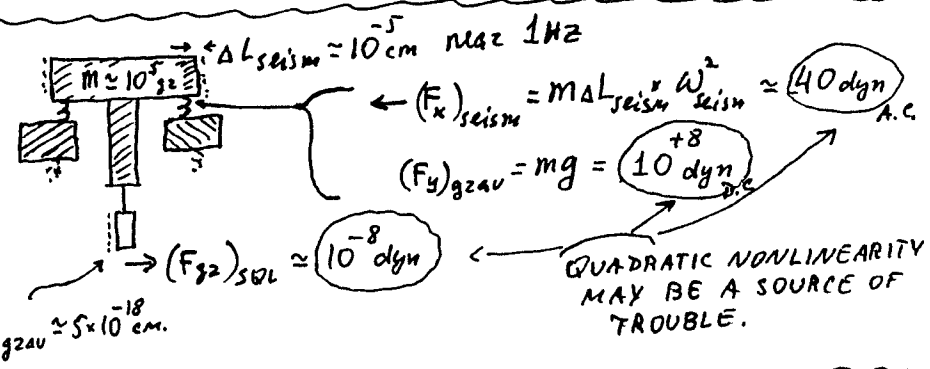 ΔL seism ≃ 10^-5 cm near 1Hz
m ≃ 10^5 gr
(F_x)seism = m ΔL seism × ω²seism ≃ 40 dyn
A.C.
(F_y)grav = mg = 10^+8 dyn
D.C.
(F gr)SQL ≃ 10^-8 dyn
QUADRATIC NONLINEARITY
MAY BE A SOURCE OF
TROUBLE.
grav ≃ 5×10^-18 cm.